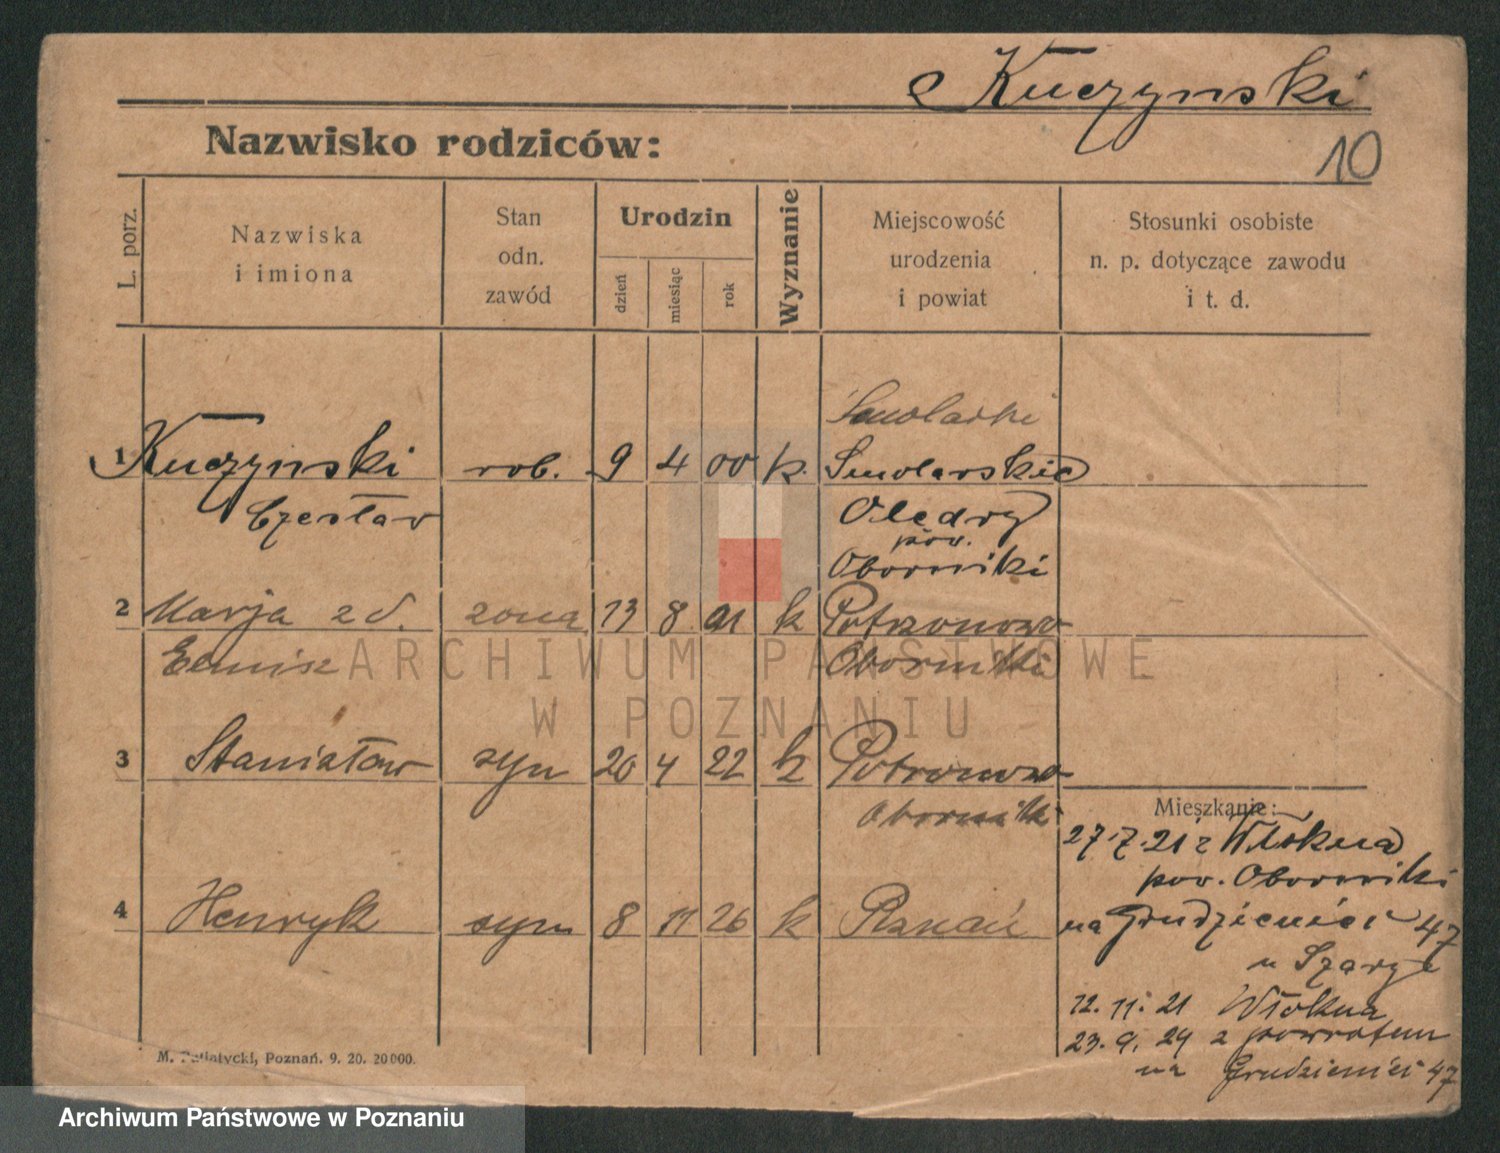 Kuczynski
10
Nazwisko rodziców:
L. porz.
Nazwiska
i imiona
Stan
odn.
zawód
Urodzin
dzień
miesiąc
rok
Wyznanie
Miejscowość
urodzenia
i powiat
Stosunki osobiste
n. p. dotyczące zawodu
i t. d.
Smolarki
1 Kuczynski rob. 9 4 00 k. Smolarskie
Czesław Olędry
pow.
Oborniki
2 Marja z d. żona 13 8 91 k Potrzonowo
Oborniki
3 Stanisław syn 20 4 22 k Potrzonowo
Oborniki
4 Henryk syn 8 11 26 k Poznań
Mieszkanie:
27.7.21 z Włókna
pow. Oborniki
na Grudzieniec 47
u Szary
12.11.21 Włókna
23.9.24 z powrotem
na Grudzieniec 47
M. Putiatycki, Poznań. 9. 20. 20000.
ARCHIWUM PAŃSTWOWE
W POZNANIU
Archiwum Państwowe w Poznaniu